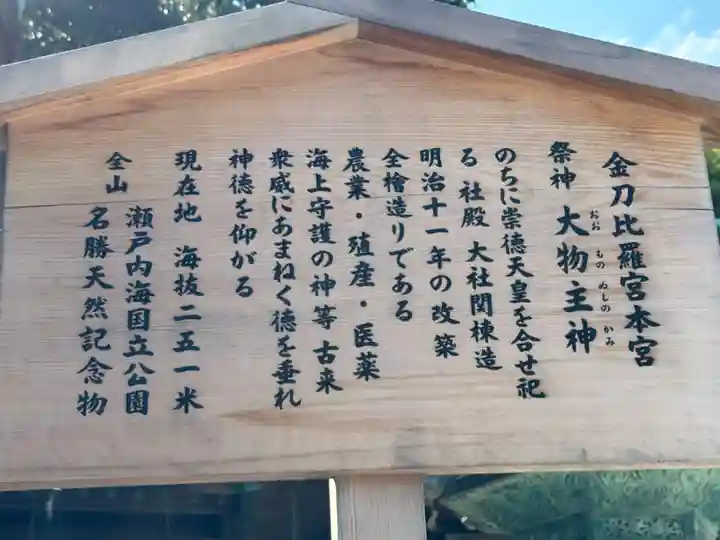 金刀比羅宮本宮
祭神 大物主神
おお もの ぬしの かみ
のちに崇徳天皇を合せ祀
る 社殿 大社関棟造
明治十一年の改築
全檜造りである
農業・殖産・医薬
海上守護の神等古来
衆威にあまねく徳を垂れ
神徳を仰がる
現在地 海抜二五一米
全山 瀬戸内海国立公園
名勝天然記念物